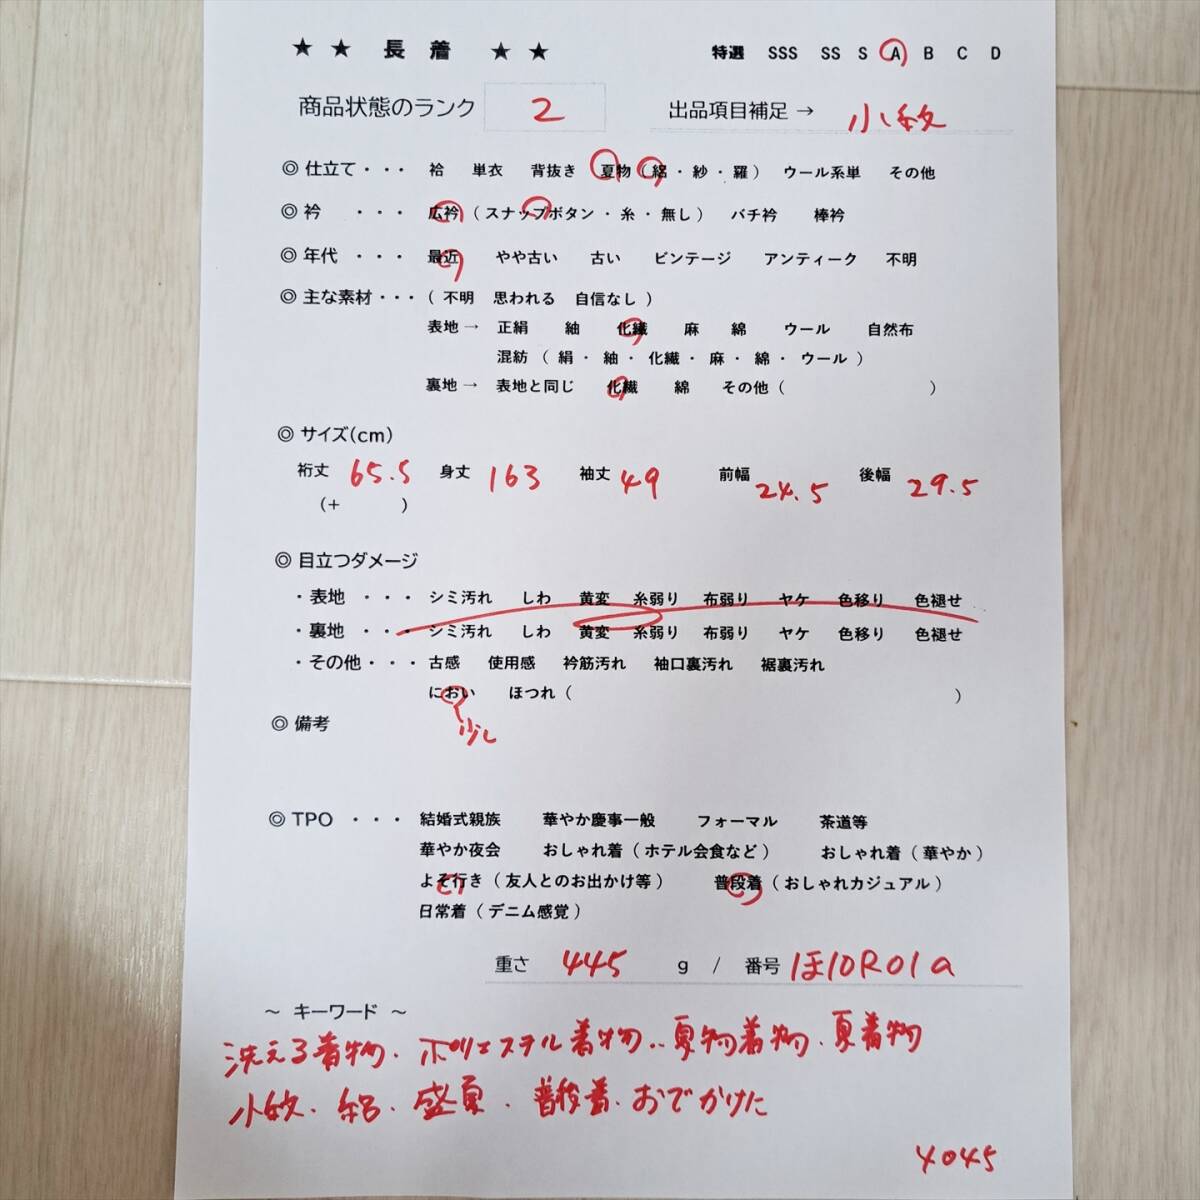 ★ ★ 長 着 ★ ★ 特選 SSS SS S A B C D
商品状態のランク 2 出品項目補足 → 小紋
◎ 仕立て・・・ 袷 単衣 背抜き 夏物（絽・紗・羅） ウール系単 その他
◎ 衿 ・・・ 広衿（スナップボタン・糸・無し） バチ衿 棒衿
◎ 年代 ・・・ 最近 やや古い 古い ビンテージ アンティーク 不明
◎ 主な素材・・・（ 不明 思われる 自信なし ）
表地→ 正絹 紬 化繊 麻 綿 ウール 自然布
混紡（ 絹・紬・化繊・麻・綿・ウール ）
裏地→ 表地と同じ 化繊 綿 その他（ ）
◎ サイズ(cm)
裄丈 65.5 身丈 163 袖丈 49 前幅 24.5 後幅 29.5
(+ )
◎ 目立つダメージ
・表地 ・・・ シミ汚れ しわ 黄変 糸弱り 布弱り ヤケ 色移り 色褪せ
・裏地 ・・・ シミ汚れ しわ 黄変 糸弱り 布弱り ヤケ 色移り 色褪せ
・その他・・・ 古感 使用感 衿筋汚れ 袖口裏汚れ 裾裏汚れ
におい ほつれ（ ）
少し
◎ 備考
◎ TPO ・・・ 結婚式親族 華やか慶事一般 フォーマル 茶道等
華やか夜会 おしゃれ着（ホテル会食など） おしゃれ着（華やか）
よそ行き（友人とのお出かけ等） 普段着（おしゃれカジュアル）
日常着（デニム感覚）
重さ 445 g / 番号 ほ10R01a
～ キーワード ～
洗える着物・ポリエステル着物・夏物着物・夏着物
小紋・絽・盛夏・普段着・おでかけに
4045